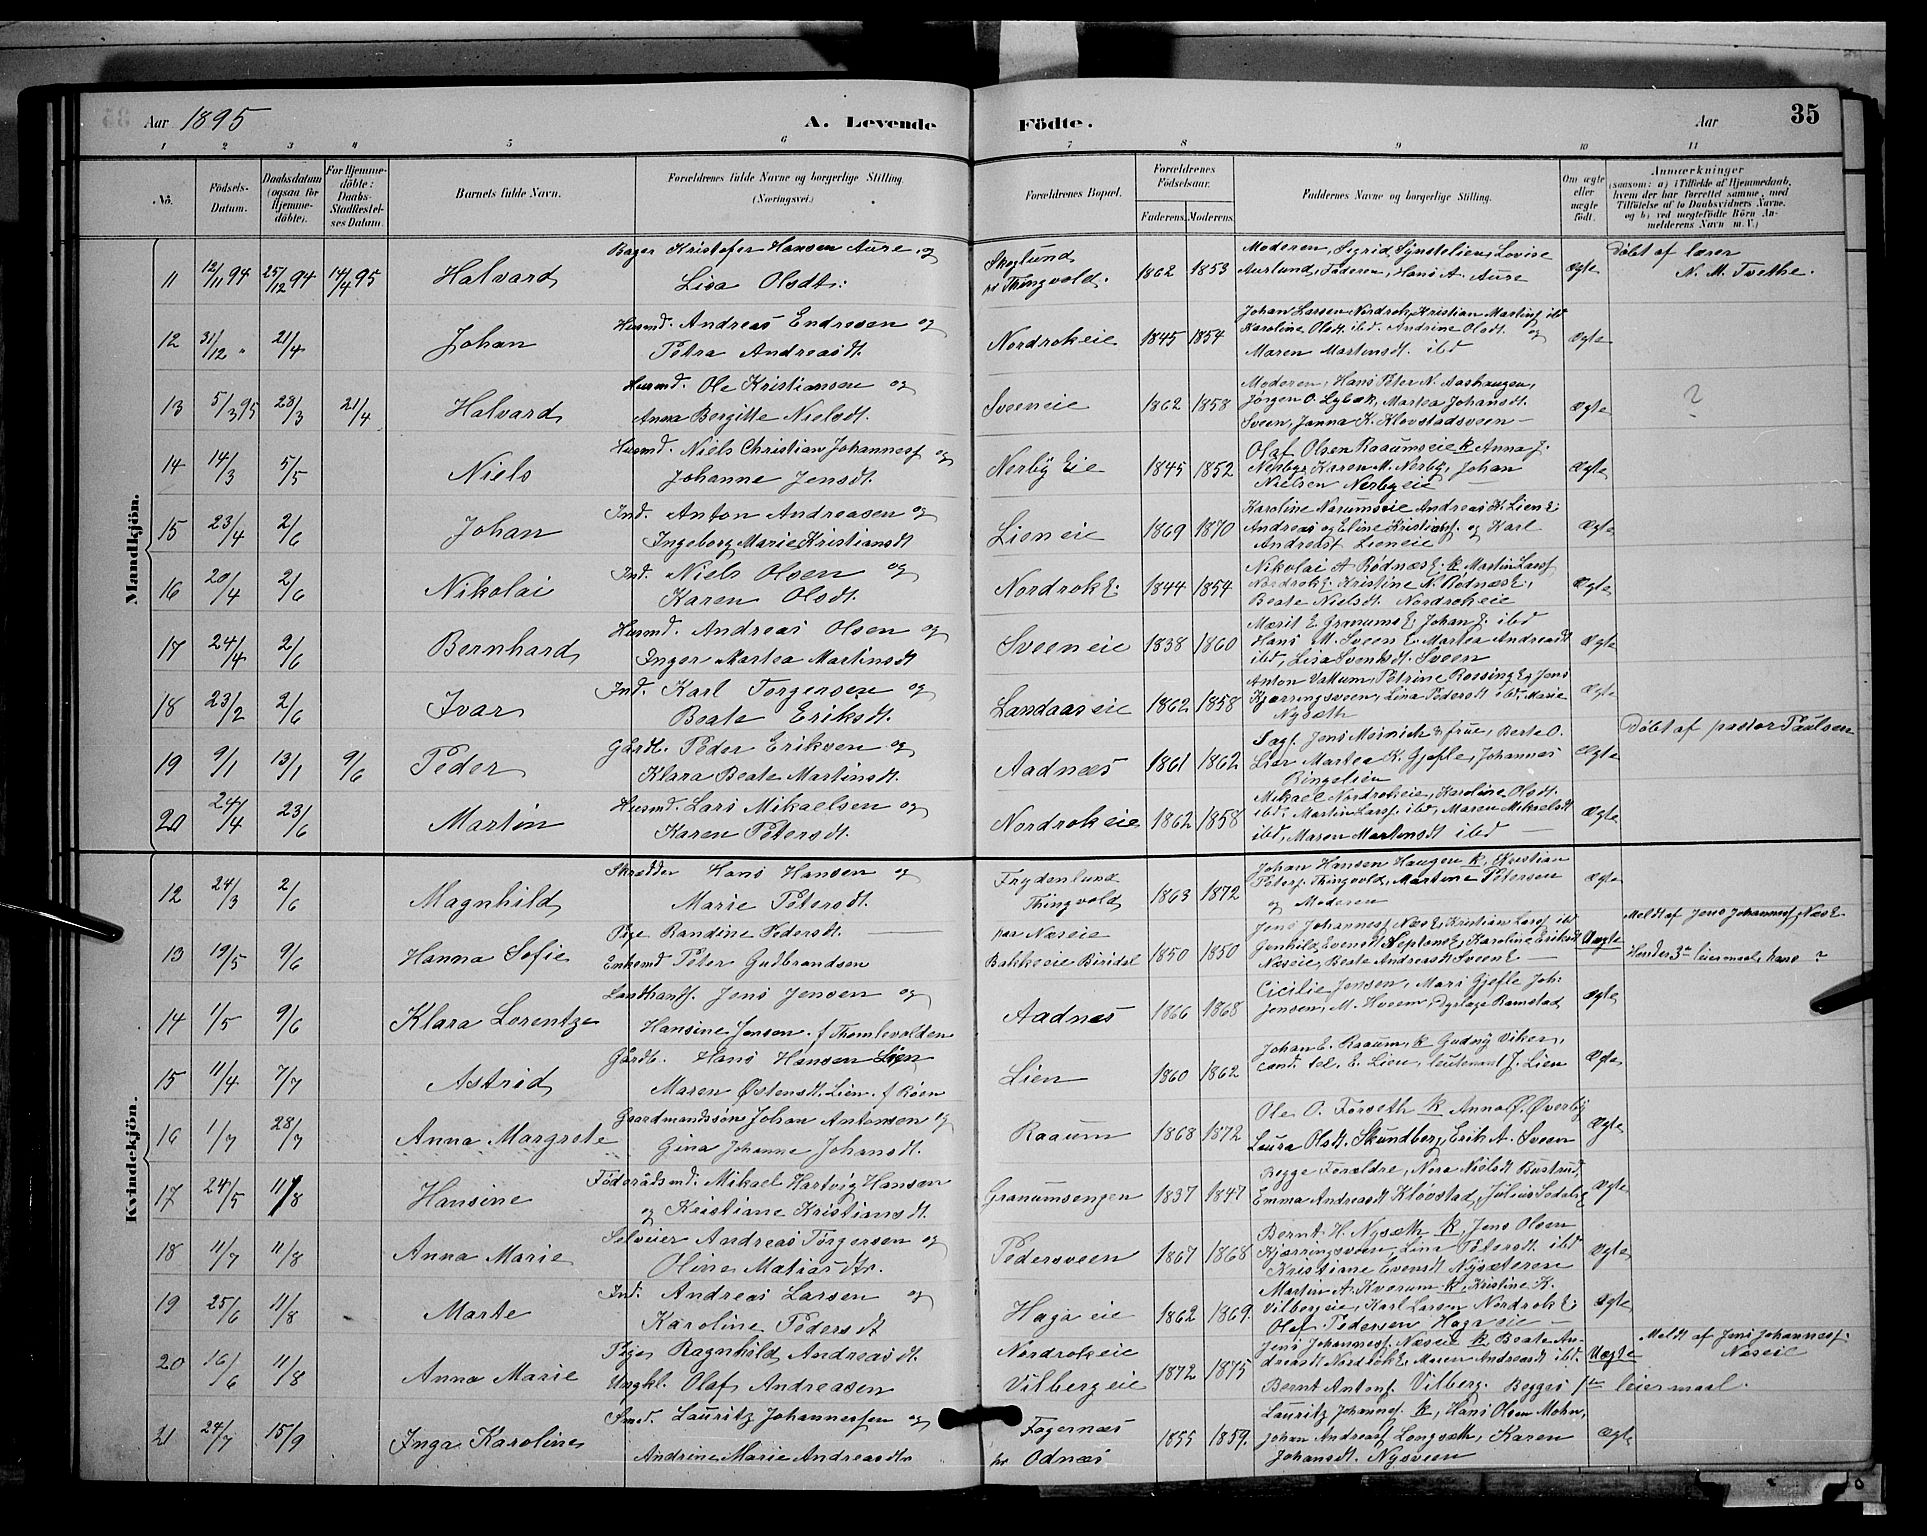 Aar 1895 A. Levende Födte. Aar 35
1 2 3 4 5 6 7 8 9 10 11
No.
Födsels-Datum.
Daabsdatum (ogsaa for Hjemme-döbte).
For Hjemme-döbte: Daabs-Stadfæstel-ses Datum.
Barnets fulde Navn.
Forældrenes fulde Navne og borgerlige Stilling. (Næringsvei.)
Forældrenes Bopæl.
Forældrenes Födselsaar.
Faderens. Moderens.
Faddernes Navne og borgerlige Stilling.
Om ægte eller uægte født.
Anmærkninger
(saasom: a) i Tilfælde af Hjemmedaab, hvem der har forrettet samme, med Tilföielse af to Daabsvidners Navne. og b) ved uægtefödte Börn An-melderens Navn m. V.)
Mandkjön.
11 12/11 94 25/12 94 14/4 95 Halvard
Bager Kristofer Hansen Aure og
Lisa Olsdt:
Skoglund
pr Thingvold. 1862 1853
Moderen, Sigrid Synstelien, Lovise
Aurlund, Faderen, Hans A. Aure
Ægte
Døbt af lærer
N. M. Tvethe.
12 31/12 " 21/4 Johan
Husmd. Andreas Endresen og
Petra Andreasdt.
Nordrokeie 1845 1854
Johan Larsen Nordrok, Kristian Martins ibd
Karoline Olsdt. ibd. Andrine Olsdt. og
Maren Martensdt. ibd
Ægte
13 5/3 95 23/3 21/4 Halvard
Husmd. Ole Kristiansen og
Anna Bergitte Nielsdt.
Sveeneie 1862 1858
Moderen, Hans Peter N. Aashaugen,
Jörgen O. Lybæk, Martea Johansdt.
Sveen, Janna K. Klovstadsveen
Ægte ?
14 14/3 5/5 Niels
Husmd. Niels Christian Johannesf og
Johanne Jensdt.
Nerby Eie 1845 1852
Olaf Olsen Raaumseie k Anna J.
Nerbye, Karen M. Nerby, Johan
Nielsen Nerbyeie
Ægte
15 23/4 2/6 Johan
Ind. Anton Andreasen og
Ingeborg Marie Kristiansdt
Lieneie 1869 1870
Karoline Narumseie Andreas K. Lien E.
Andreas og Eline Kristiansf. og Karl
Andreasf Lieneie
Ægte
16 20/4 2/6 Nikolai
Ind. Niels Olsen og
Karen Olsdt.
Nordrok E. 1844 1854
Nikolai A Rødnæs E. k Martin Larsf
Nordrok E. Kristine N. Rødnæs E,
Beate Nielsdt. Nordrokeie
Ægte
17 24/4 2/6 Bernhard
Husmd. Andreas Olsen og
Inger Martea Martinsdt
Sveeneie 1838 1860
Marit E Granums E, Johan J. ibd
Hans M. Sveen E. Martea Andreasdt
ibd, Lisa Svendsdt. Sveen
Ægte
18 23/2 2/6 Ivar
Ind. Karl Torgersen og
Beate Eriksdt.
Landaaseie 1862 1858
Anton Vakum, Petrine Rossing E, Jens
Kjærringsveen, Lina Pedersdt ibd, Marie
Nysæth
Ægte
19 9/1 13/1 9/6 Peder
Gårdb. Peder Eriksen og
Klara Beate Martinsdt.
Aadnæs 1861 1862
Sagf. Jens Meinich & frue, Berte O.
Lier Martea K. Gjefle, Johannes
Ringelien
Ægte
Døbt af pastor Paulsen
20 24/4 23/6 Martin
Husmd. Lars Mikaelsen og
Karen Petersdt.
Nordrokeie 1862 1858
Mikael Nordrokeie, Karoline Olsdt.
ibd, Martin Larsf. ibd, Maren Mikaelsdt
ibd, Maren Martensdt ibd
Ægte
Kvindekjön.
12 24/3 2/6 Magnhild
Skrædder Hans Hansen og
Marie Petersdt.
Frydenlund
Thingvold 1863 1872
Johan Hansen Haugen k, Kristian
Petersf. Thingvold, Martine Petersen
og Moderen
Ægte
13 19/5 9/6 Hanna Sofie
Pige Randine Pedersdt.
Enkemd Peter Gudbrandsen
Næseie
Bakkeeie Biridal 1850 1850
Jens Johannesf Næs E, Kristian Larsf. ibd
Gunhild Evensdt Neptons E, Karoline Eriksdt
Næseie, Beate Andreasdt Sveen E
Uægte
Meldt af Jens Johannesf, Næs E
Hendes 3die leiermaal, hans ?
14 1/5 9/6 Klara Lorentze
Landhandl. Jens Jensen og
Hansine Jensen f Thomlevolden
Aadnæs 1866 1868
Cicilie Jensen, Mari Gjefle Joh:
Jensen, M. Hveem, Dyrlæge Ramstad
Ægte
15 11/4 7/7 Astrid
Gårdb. Hans Hansen Lien
Maren Østensdt. Lien f Røen
Lien 1860 1862
Johan E. Raaum, k Gudny Viken,
cand. tel. E. Lien, leutenant J. Lien
Ægte
16 1/7 28/7 Anna Margrete
Gaardmandssøn Johan Antonsen og
Gina Johanne Johansdt.
Raaum 1868 1872
Ole O. Forseth k Anna O. Øverby
Laura Olsdt. Skundberg, Erik A. Sveen
Ægte
17 24/5 11/8 Hansine
Föderådsmd. Mikael Hartvig Hansen
og Kristiane Kristiansdt.
Granumsengen 1837 1847
Begge Forældre, Nora Nielsdt Bustrud,
Emma Andreasdt Klovstad, Julius Sedalig
Ægte
18 11/7 11/8 Anna Marie
Selveier Andreas Torgersen og
Oline Matiasdtr.
Pedersveen 1867 1868
Bernt H. Nysæth k, Jens Olsen
Kjærringsveen, Lina Petersdt. ibd
Kristiane Evensdt Nysæteren
Ægte
19 25/6 11/8 Marte
Ind. Andreas Larsen og
Karoline Pedersdt
Haga eie 1862 1869.
Martin A. Kvarum k, Kristine K.
Vilbergeie, Karl Larsen Nordrok E.
Olaf Pedersen Hagaeie
Ægte
20 16/6 11/8 Anna Marie
Pige Ragnhild Andreasdt.
Ungkl. Olaf Andreasen
Nordrokeie
Vilbergeie 1872 1875
Jens Johannesf. Næseie k Beate An-
dreasdt Nordrok E, Maren Andreasdt ibd.
Bernt Antonf. Vilberg. Begges 1ste leiermaal.
Uægte
Meldt af Jens Johannesf.
Næseie
21 24/7 15/9 Inga Karoline
Smed. Lauritz Johannessen og
Andrine Marie Andreasdtr
Fagernæs
pr Odnæs 1855 1859.
Lauritz Johannesf. k, Hans Olsen Mohn,
Johan Andreasf Longsæth, Karen
Johansdt. Nysveen
Ægte